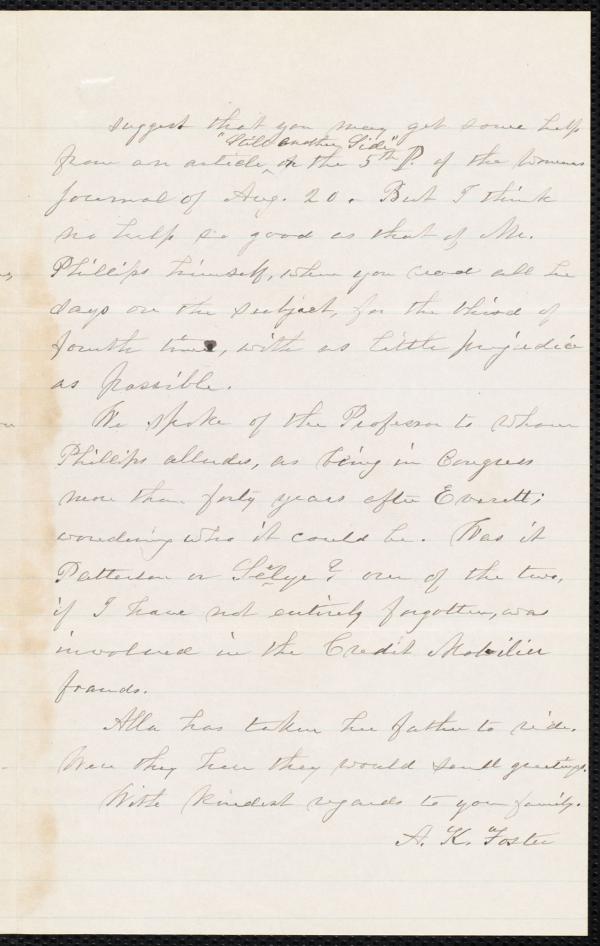 suggest that you may get some help
"Still another Side"
from an article, on the 5th P. of the Womans
Journal of Aug. 20. But I think
no help so good as that of Mr.
Phillips himself, when you read all he
says on the subject, for the third of
fourth time, with as little prejudice
as possible.
We spoke of the Professor to whom
Phillips alludes, as being in Congress
more than forty years after Everett;
wondering who it could be. Was it
Patterson or Seelye? one of the two,
if I have not entirely forgotten, was
involved in the Credit Mobilier
frauds.
Alla has taken her father to ride.
Were they here they would send greetings.
With kindest regards to your family.
A. K. Foster